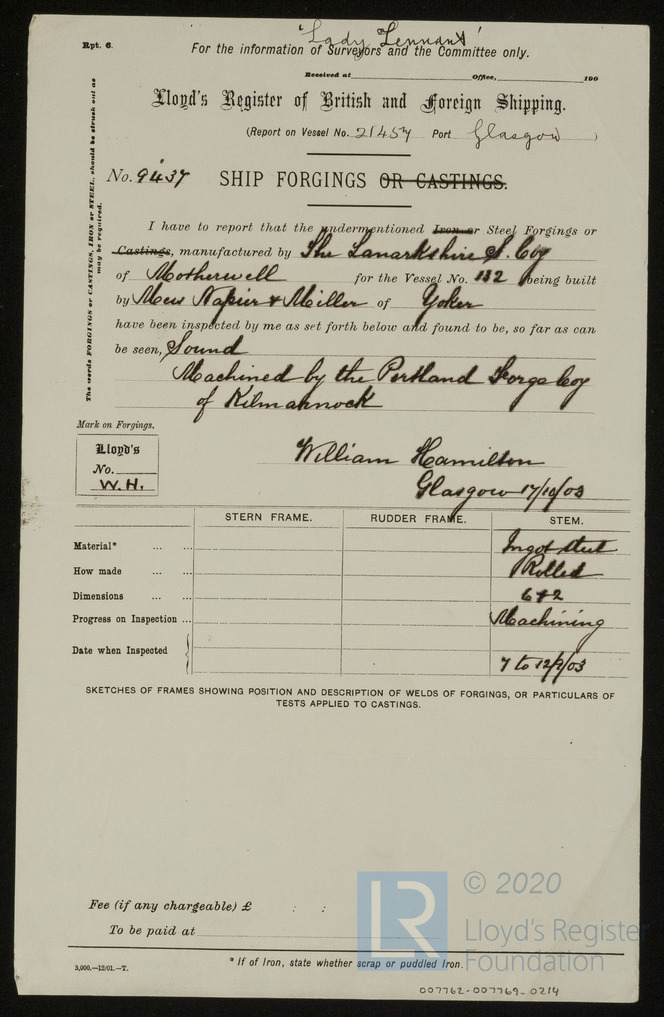 'Lady Tennant'
Rpt. 6.
For the information of Surveyors and the Committee only.
Received at Office, 190
Lloyd's Register of British and Foreign Shipping.
(Report on Vessel No. 21457 Port Glasgow )
No. 9437 SHIP FORGINGS OR CASTINGS.
The words FORGINGS or CASTINGS, IRON or STEEL, should be struck out as
may be required.
I have to report that the undermentioned Iron or Steel Forgings or
Castings, manufactured by The Lanarkshire S. Coy
of Motherwell for the Vessel No. 132 being built
by Mess Napier & Miller of Yoker
have been inspected by me as set forth below and found to be, so far as can
be seen, Sound
Machined by the Portland Forge Coy
of Kilmarnock
Mark on Forgings.
Lloyd's
No.
W.H.
William Hamilton
Glasgow 17/10/03
STERN FRAME. RUDDER FRAME. STEM.
Material* ... ... Ingot steel
How made ... ... Rolled
Dimensions ... ... 6 + 2
Progress on Inspection ... Machining
Date when Inspected 7 to 12/9/03
SKETCHES OF FRAMES SHOWING POSITION AND DESCRIPTION OF WELDS OF FORGINGS, OR PARTICULARS OF
TESTS APPLIED TO CASTINGS.
Fee (if any chargeable) £ : :
To be paid at
* If of Iron, state whether scrap or puddled Iron.
3,000.—12/01.—T.
007762-007769-0214
LR
© 2020
Lloyd's Register
Foundation